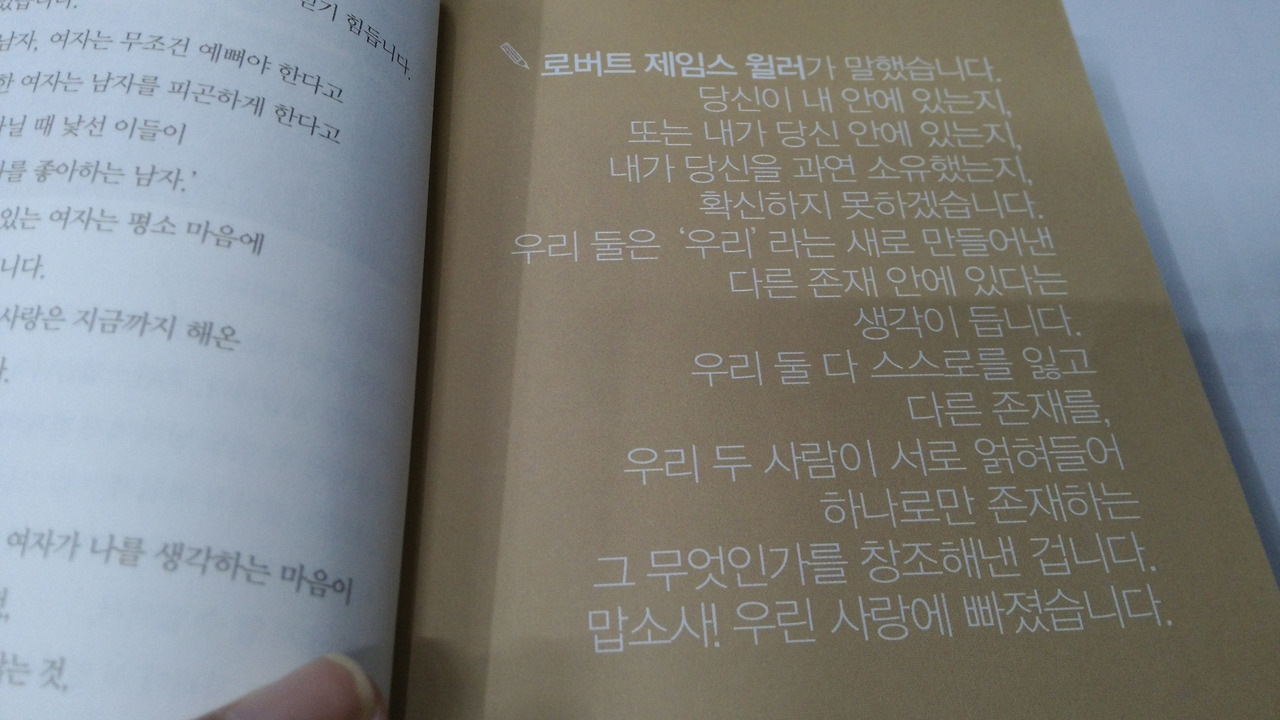 믿기 힘듭니다.
남자, 여자는 무조건 예뻐야 한다고
한 여자는 남자를 피곤하게 한다고
닐 때 낯선 이들이
를 좋아하는 남자.’
있는 여자는 평소 마음에
니다.
사랑은 지금까지 해온
여자가 나를 생각하는 마음이
는 것,
로버트 제임스 윌러가 말했습니다.
당신이 내 안에 있는지,
또는 내가 당신 안에 있는지,
내가 당신을 과연 소유했는지,
확신하지 못하겠습니다.
우리 둘은 ‘우리’ 라는 새로 만들어낸
다른 존재 안에 있다는
생각이 듭니다.
우리 둘 다 스스로를 잃고
다른 존재를,
우리 두 사람이 서로 얽혀들어
하나로만 존재하는
그 무엇인가를 창조해낸 겁니다.
맙소사! 우린 사랑에 빠졌습니다.